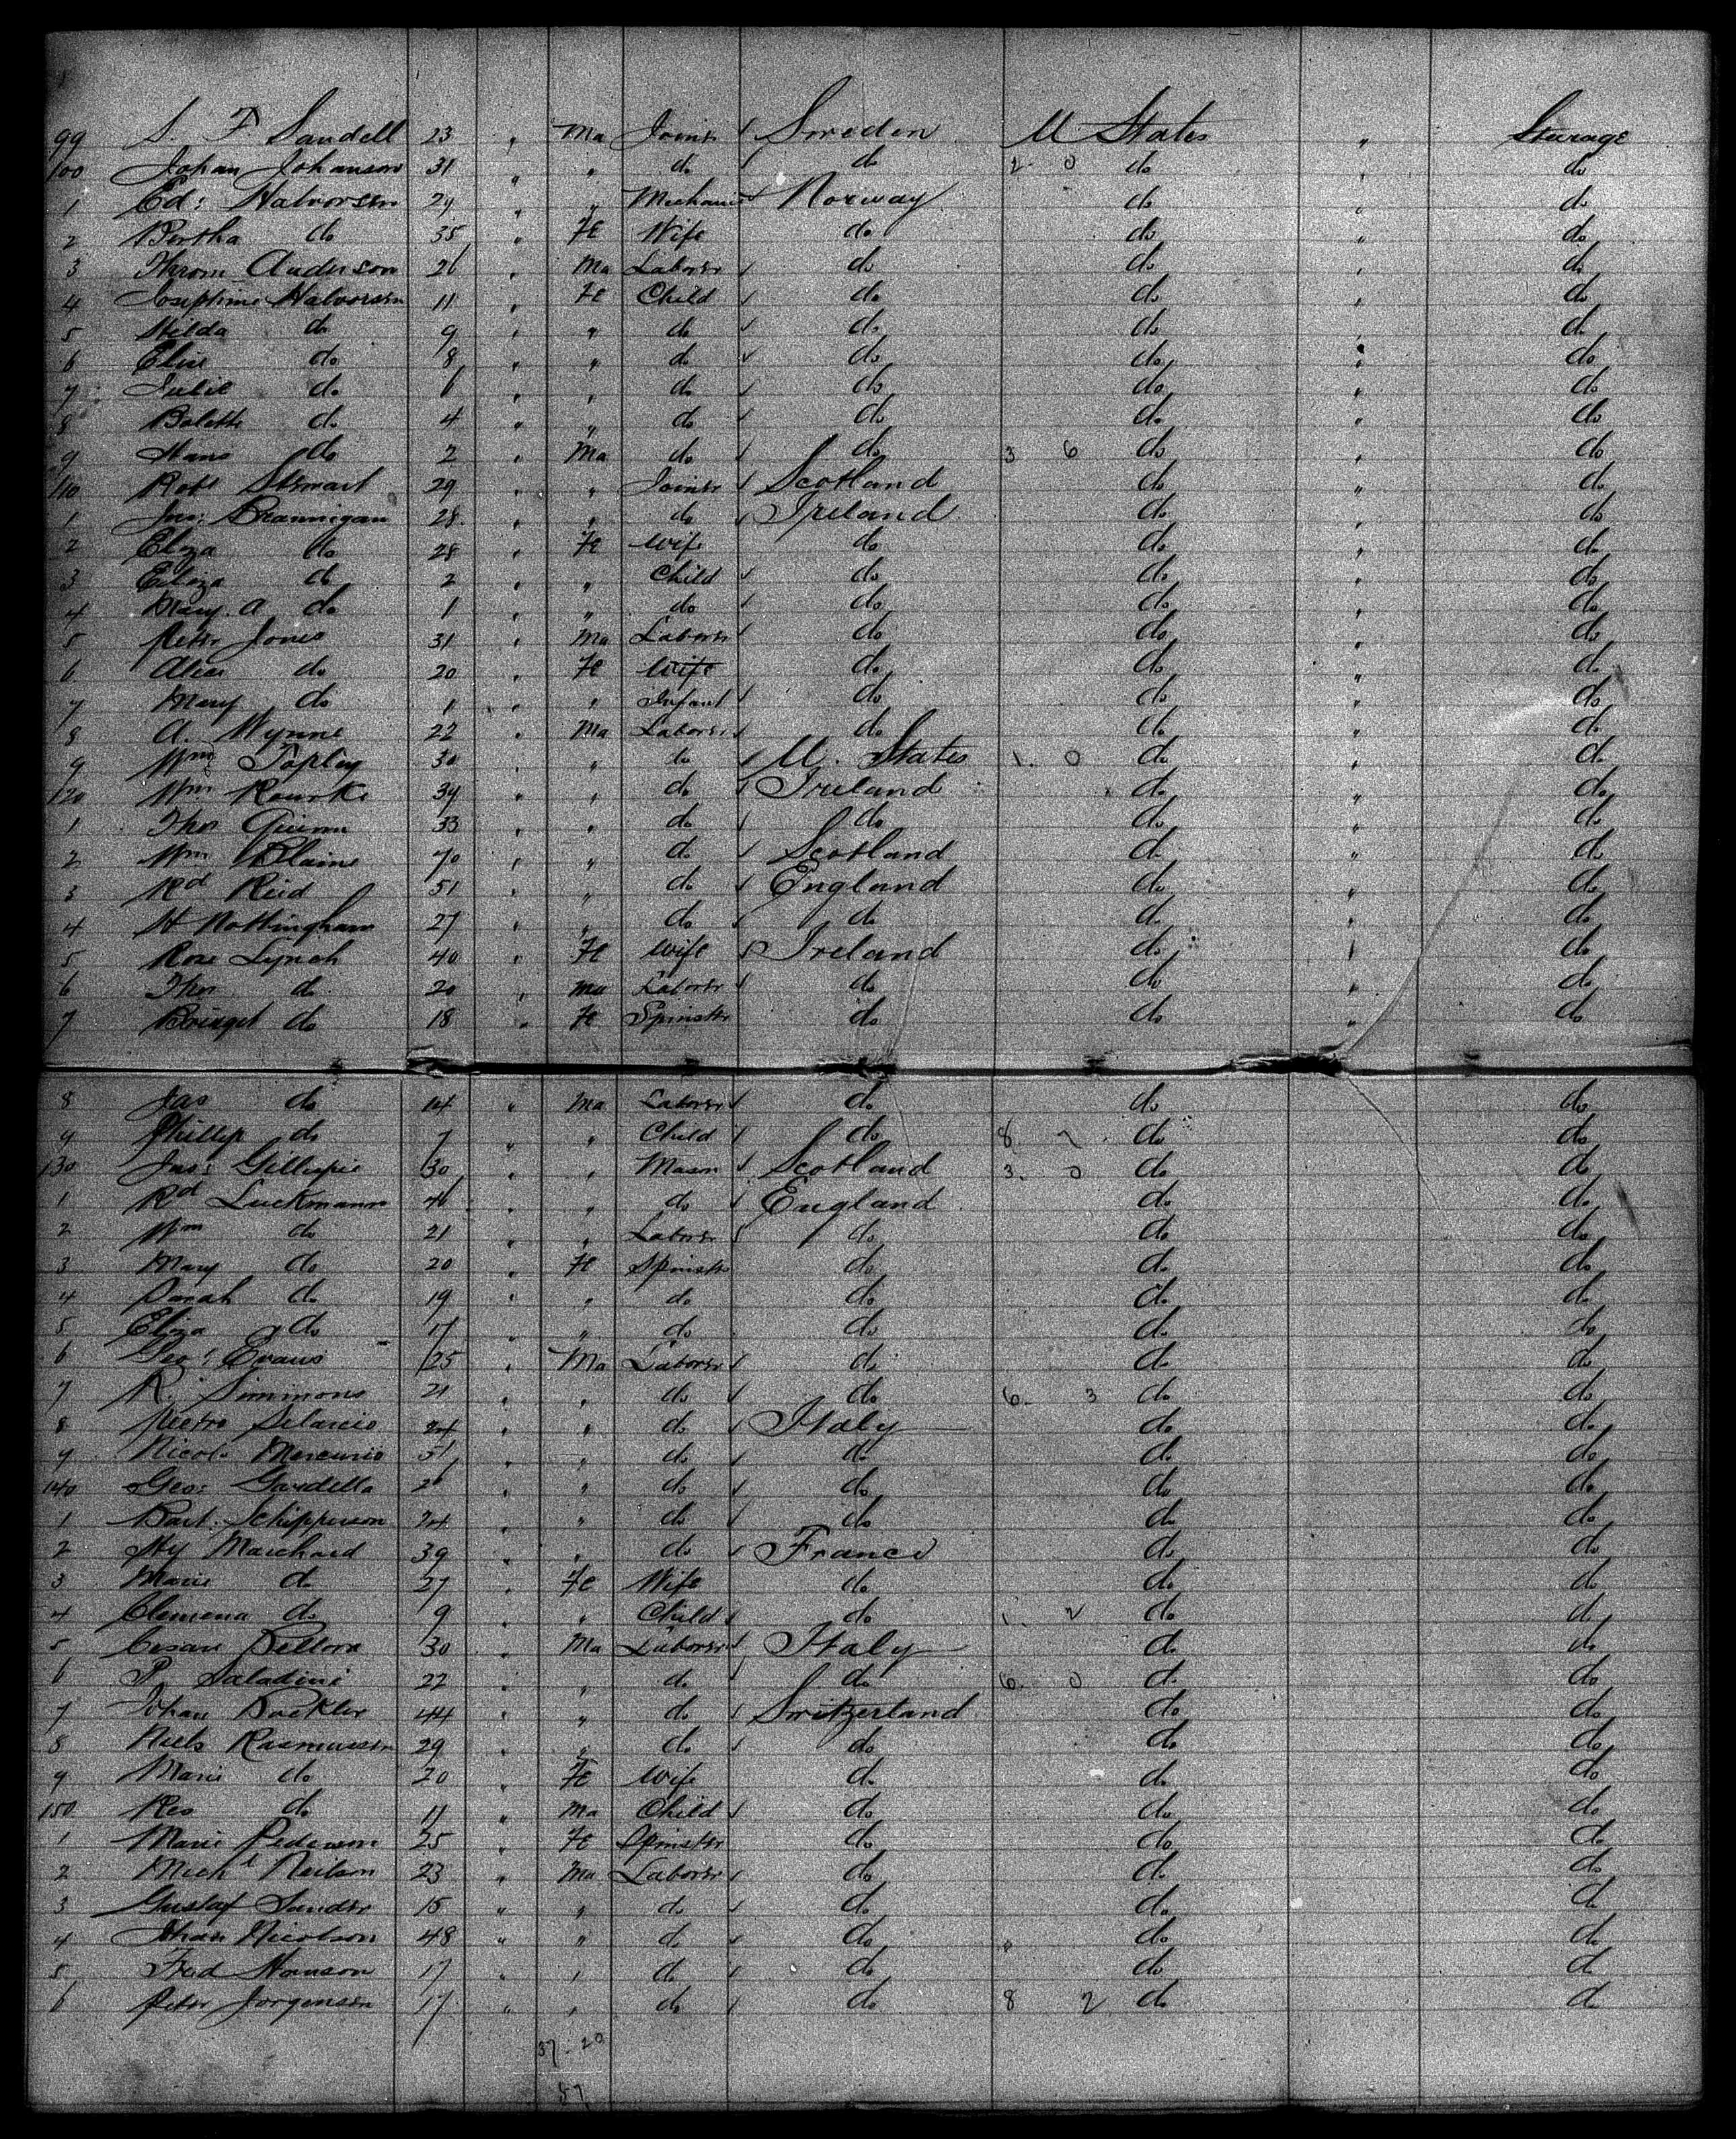 99 S. F Sandell 23 " Ma Joiner ✓ Sweden U States " Steerage
100 Johan Johanson 31 " " do ✓ do 2 0 do do
1 Ed: Halvorsen 29 " " Mechanic ✓ Norway do " do
2 Bertha do 35 " Fe Wife do do " do
3 Anderson 26 " Ma Laborer ✓ do do " do
4 Josephine Halvorsen 11 " Fe Child ✓ do do " do
5 Hilda do 9 " " do ✓ do do " do
6 Elise do 8 " " do ✓ do do " do
7 Julie do 6 " " do ✓ do do " do
8 Bolette do 4 " " do ✓ do do " do
9 Hans do 2 " Ma do ✓ do 3 6 do " do
110 Robt Stewart 29 " " Joiner ✓ Scotland do " do
1 Jno: Brannigan 28 " " do ✓ Ireland do " do
2 Eliza do 28 " Fe Wife do do " do
3 Eliza do 2 " " Child ✓ do do " do
4 Mary. A do 1 " " do ✓ do do " do
5 Peter Jones 31 " Ma Laborer ✓ do do " do
6 Alice do 20 " Fe Wife do do " do
7 Mary do 1 " " Infant ✓ do do " do
8 A. Wynne 22 " Ma Laborer ✓ do do " do
9 Wm Topley 30 " " do ✓ U. States 1 0 do " do
120 Wm Rourke 39 " " do ✓ Ireland do " do
1 Thos Quinn 33 " " do ✓ do do " do
2 Wm Blaine 40 " " do ✓ Scotland do " do
3 Rd Reid 51 " " do ✓ England do " do
4 H Nottingham 27 " " do ✓ do do " do
5 Rose Lynch 40 " Fe Wife Ireland do " do
6 Thos do 20 " Ma Laborer ✓ do do " do
7 Bridget do 18 " Fe Spinster do do " do
8 Jas do 14 " Ma Laborer ✓ do do do
9 Phillip do 7 " " Child ✓ do 8 2 do do
130 Jas: Gillespie 30 " " Mason ✓ Scotland 3 0 do do
1 Rd Luckmann 46 " " do ✓ England do do
2 Wm do 21 " " Laborer ✓ do do do
3 Mary do 20 " Fe Spinster do do do
4 Sarah do 19 " " do do do do
5 Eliza do 17 " " do do do do
6 Geo: Evans 25 " Ma Laborer ✓ do do do
7 R. Simmons 21 " " do ✓ do 6 3 do do
8 Pietro 24 " " do ✓ Italy do do
9 Nicolo Mercurio 31 " " do ✓ do do do
140 Geo: Gardella 26 " " do ✓ do do do
1 Bart. Schipperson 24 " " do ✓ do do do
2 Hy Marchard 39 " " do ✓ France do do
3 Marie do 27 " Fe Wife do do do
4 Clemena do 9 " " Child ✓ do 1 2 do do
5 Cesare 30 " Ma Laborer ✓ Italy do do
6 P. Saladini 22 " " do ✓ do 6 0 do do
7 Johan Bockler 44 " " do ✓ Switzerland do do
8 Niels Rasmussen 29 " " do ✓ do do do
9 Marie do 20 " Fe Wife do do do
150 do 11 " Ma Child ✓ do do do
1 Marie Pederson 25 " Fe Spinster do do do
2 Michl Neilson 23 " Ma Laborer ✓ do do do
3 Gustaf Sander 15 " " do ✓ do do do
4 Johan Nicolson 48 " " do ✓ do do do
5 Fred Hanson 17 " " do ✓ do do do
6 Peter Jorgensen 17 " " do ✓ do 8 2 do do
37-20
57